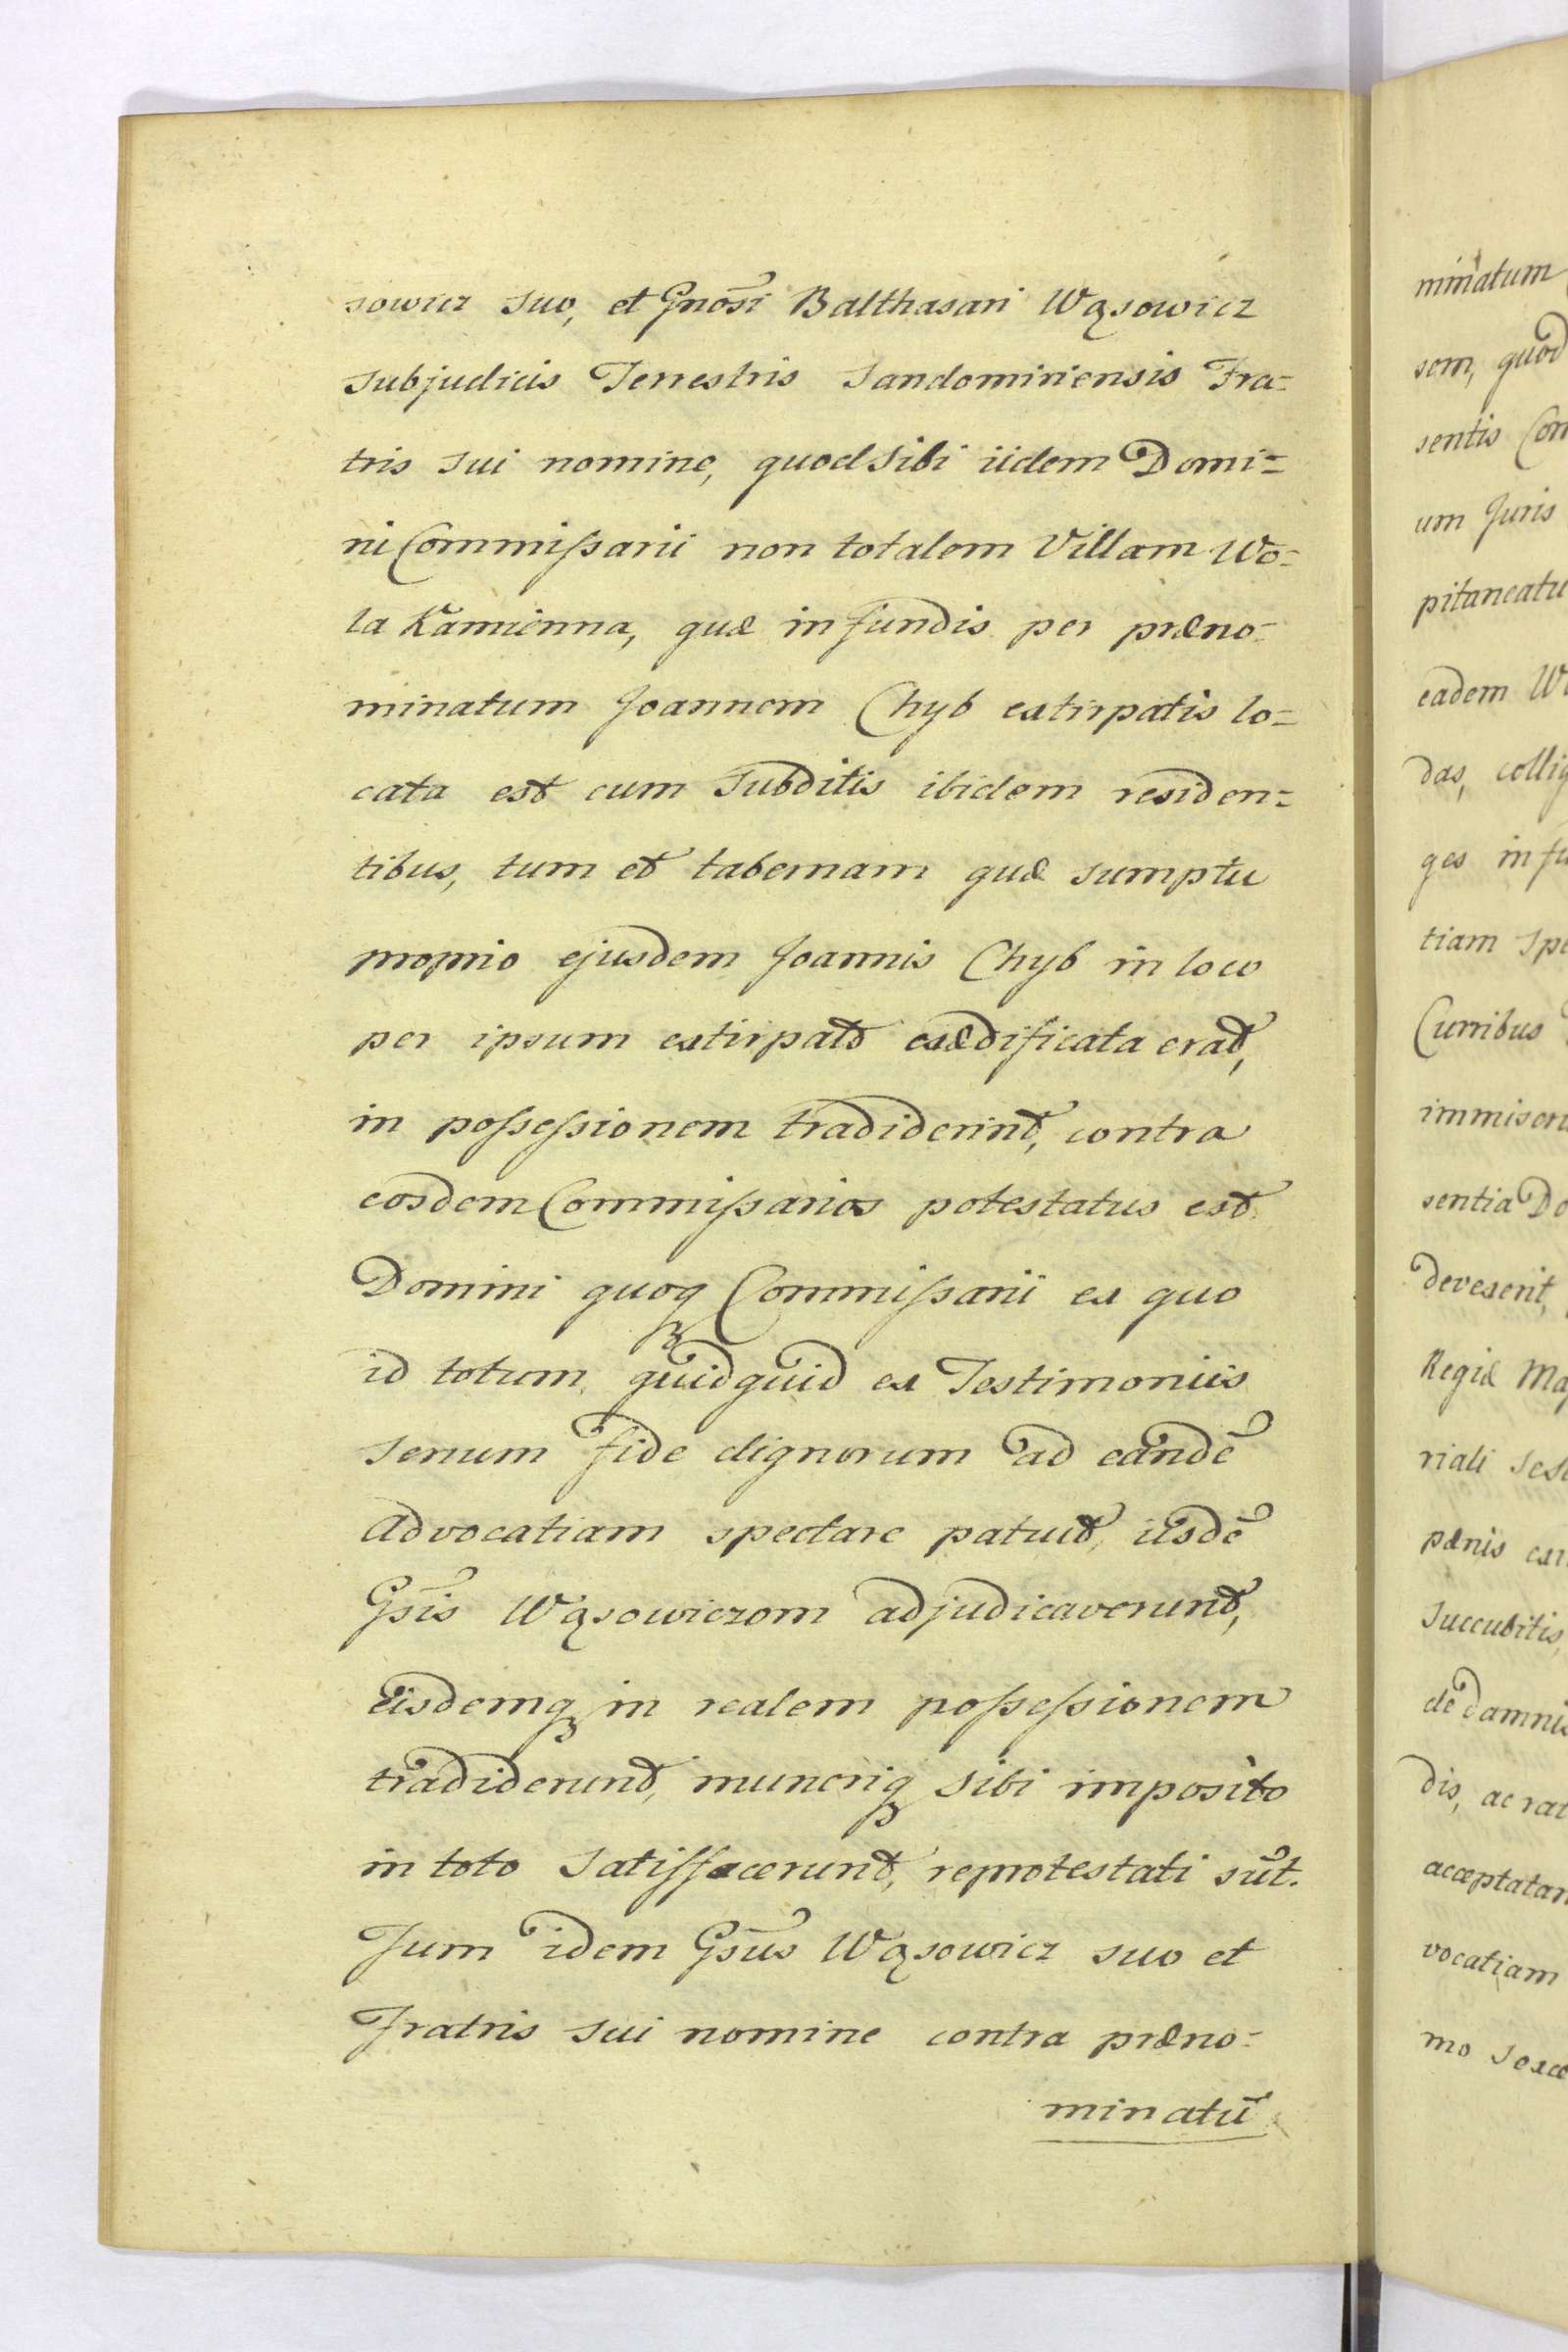 sowicz suo, et Gnōsi Balthasari Wąsowicz
Subjudicis Terrestris Sandomiriensis Fra=
tris sui nomine, quod sibi iidem Domi=
ni Commißarii non totalem Villam Wo=
la Kamienna, quæ in fundis per præno=
minatum Joannem Chyb extirpatis lo=
cata est cum Subditis ibidem residen=
tibus, tum et tabernam quæ sumptu
proprio ejusdem Joannis Chyb in loco
per ipsum extirpato exædificata erat,
in poßeßionem tradiderint, contra
eosdem Commißarios potestatus est.
Domini quoqꝫ Commißarii ex quo
id totum quidquid ex Testimoniis
Senum fide dignorum ad eandē
Advocatiam spectare patuit, iisdē
Gsīs Wąsowiczom adjudicaverunt,
Eisdemqꝫ in realem poßeßionem
tradiderunt, muneriqꝫ sibi imposito
in toto Satisfacerunt, reprotestati sūt.
Tum idem Gsūs Wąsowicz suo et
Fratris sui nomine contra præno=
minatū
minatum
sem, quod
sentis Com
um Juris
pitaneatu
eadem Wo
das, collig
ges in fu
tiam Spe
Curribus
immiser
sentia Do
devexerit,
Regiæ Maj
riali Sese
pænis
Succubitis,
de damnis
dis, ac rat
acceptatam
vocatiam
mo